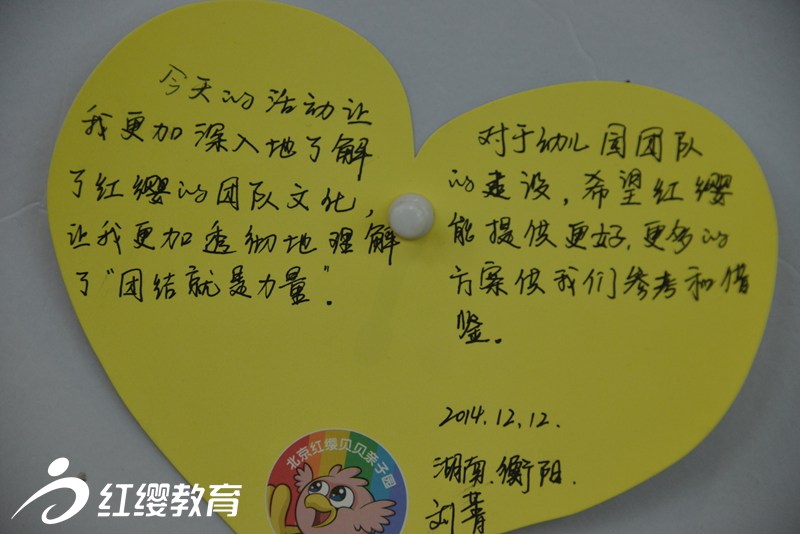 今天的活动让
我更加深入地了解
了红缨的团队文化，
让我更加透彻地理解
了“团结就是力量”。
对于幼儿园团队
的建设，希望红缨
能提供更好，更多的
方案供我们参考和借
鉴。
2014.12.12.
湖南.衡阳.
刘菁
北京红缨贝贝亲子园
红缨教育